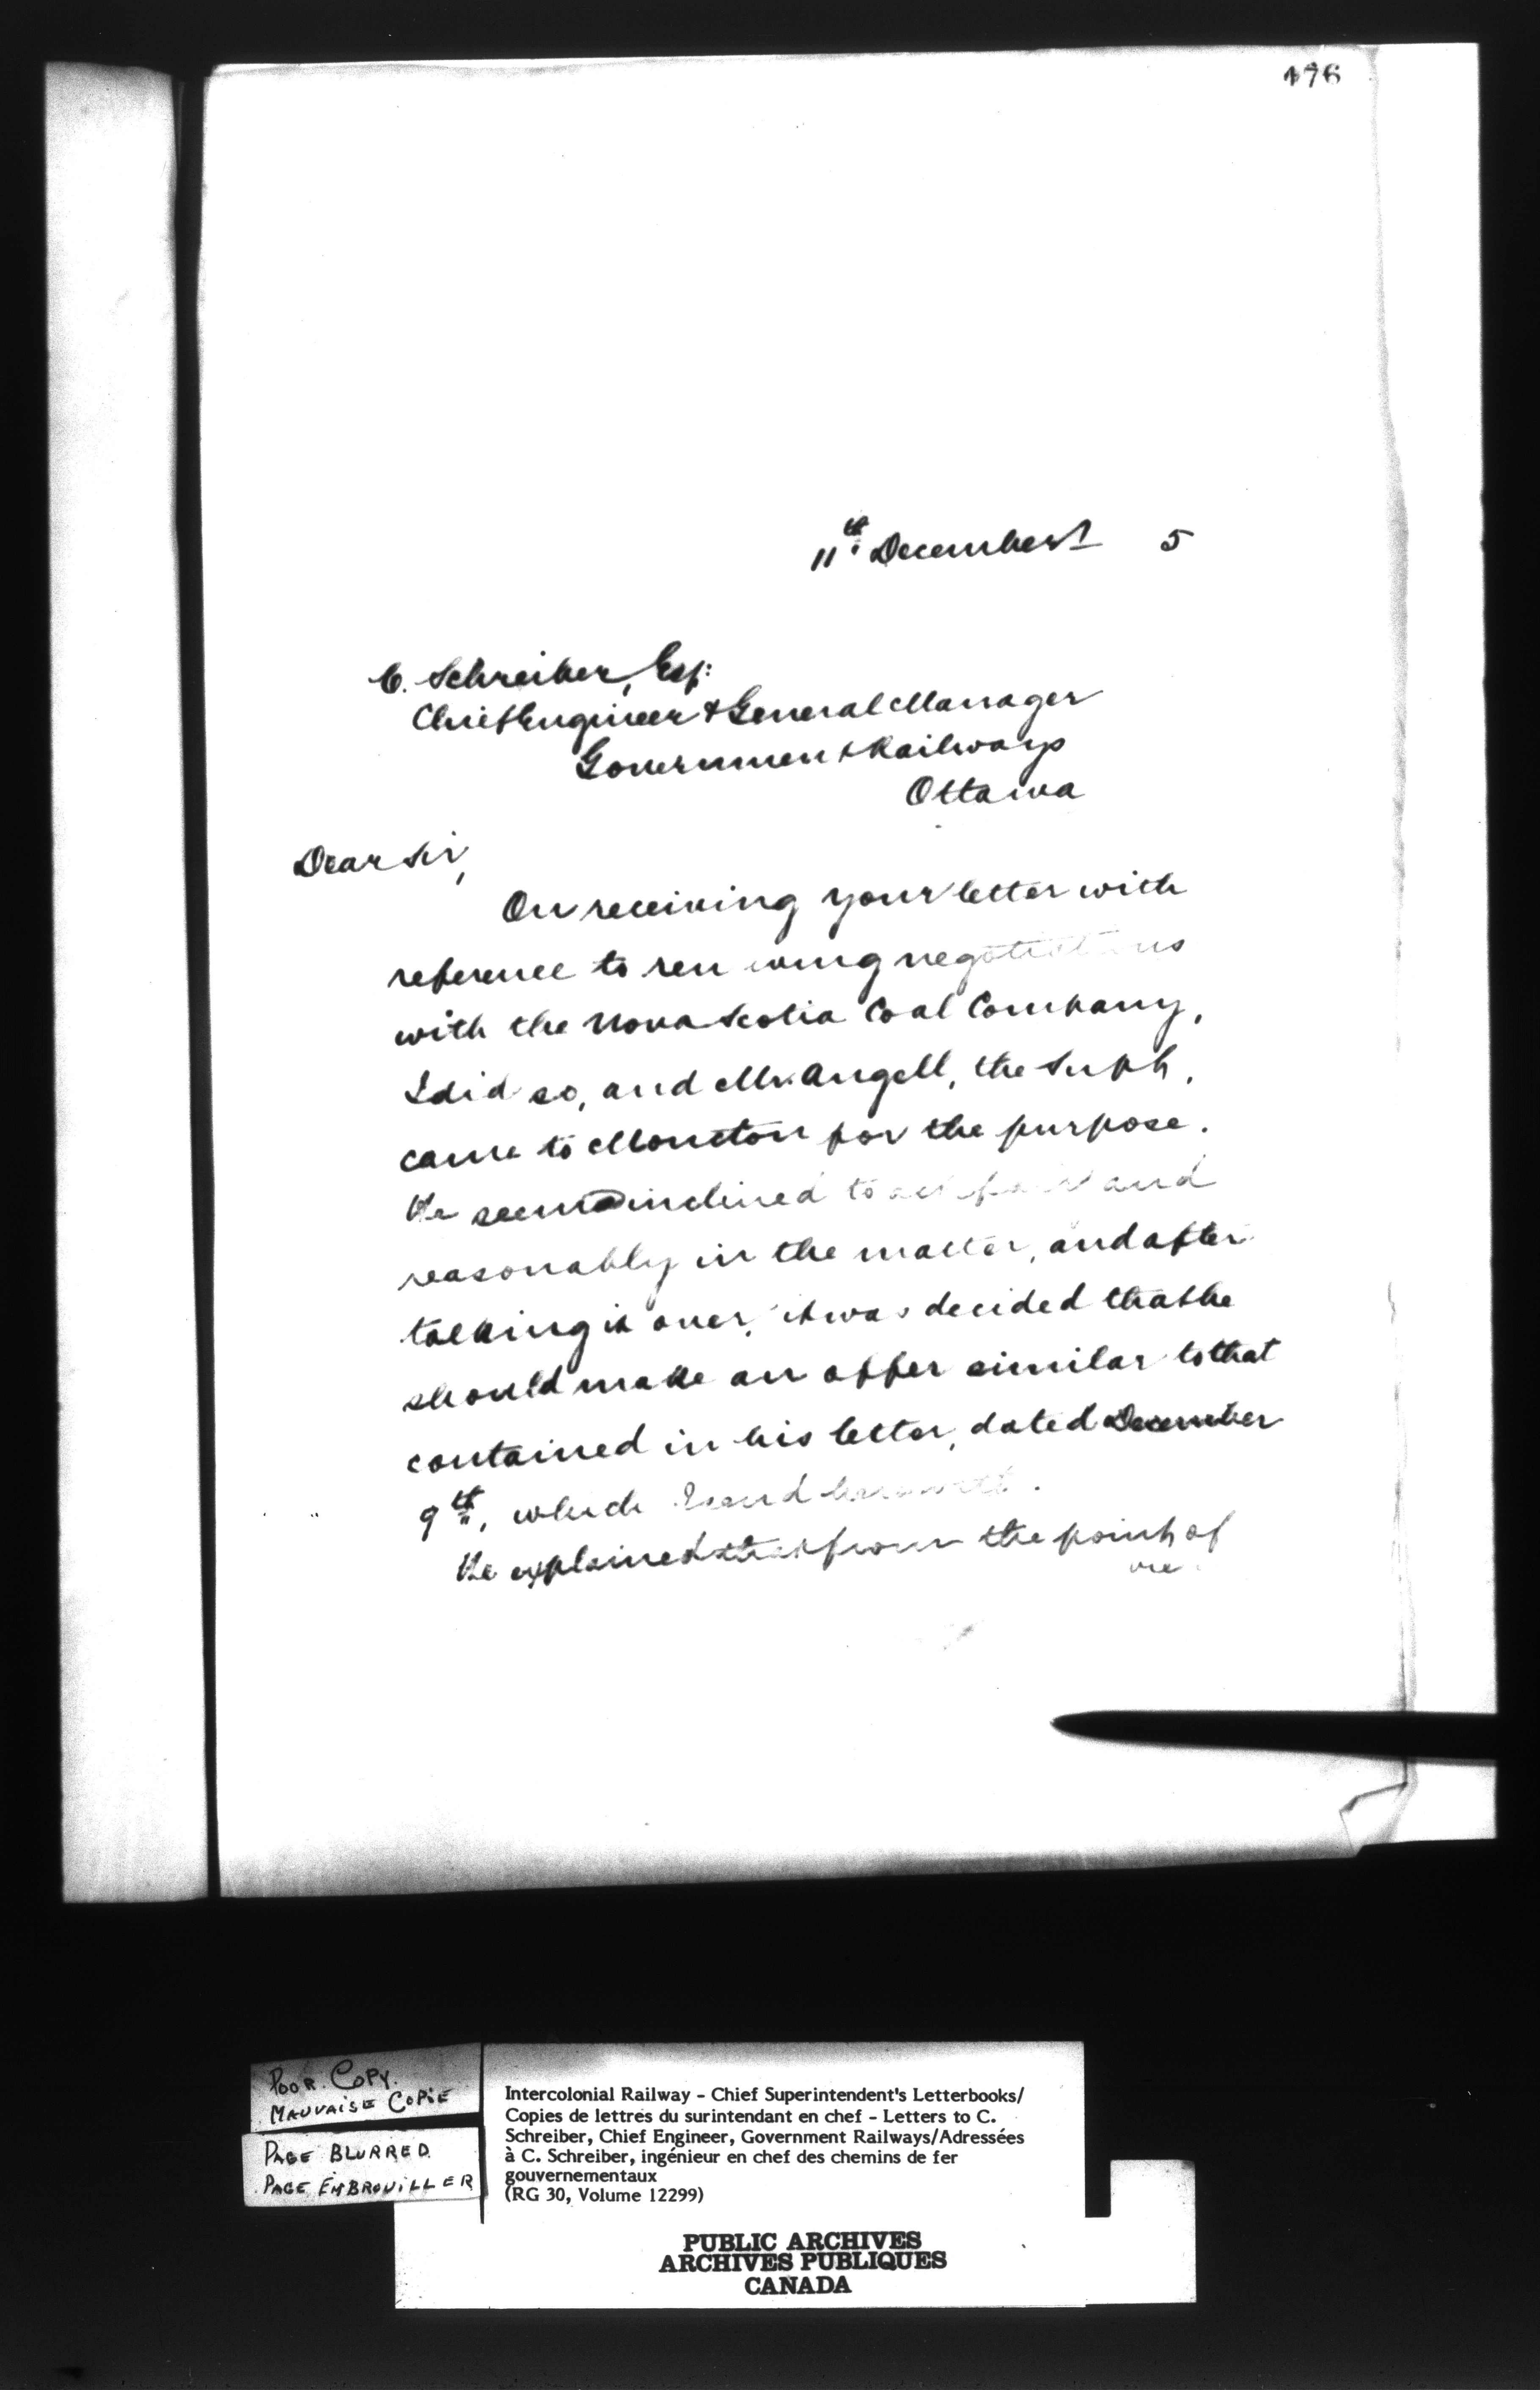 176
11th December 5
C. Schreiber, Esq:
Chief Engineer & General Manager
Government Railways
Ottawa
Dear Sir,
On receiving your letter with
reference to renewing negotiations
with the Nova Scotia Coal Company,
I did so, and Mr. Angell, the Supt,
came to Moncton for the purpose.
He seemed inclined to act fair and
reasonably in the matter, and after
talking it over, it was decided that he
should make an offer similar to that
contained in his letter, dated December
9th, which I send herewith.
He explained that from the point of
POOR COPY.
MAUVAISE COPIE
PAGE BLURRED
PAGE EMBROUILLER
Intercolonial Railway - Chief Superintendent's Letterbooks/
Copies de lettres du surintendant en chef - Letters to C.
Schreiber, Chief Engineer, Government Railways/Adressées
à C. Schreiber, ingénieur en chef des chemins de fer
gouvernementaux
(RG 30, Volume 12299)
PUBLIC ARCHIVES
ARCHIVES PUBLIQUES
CANADA